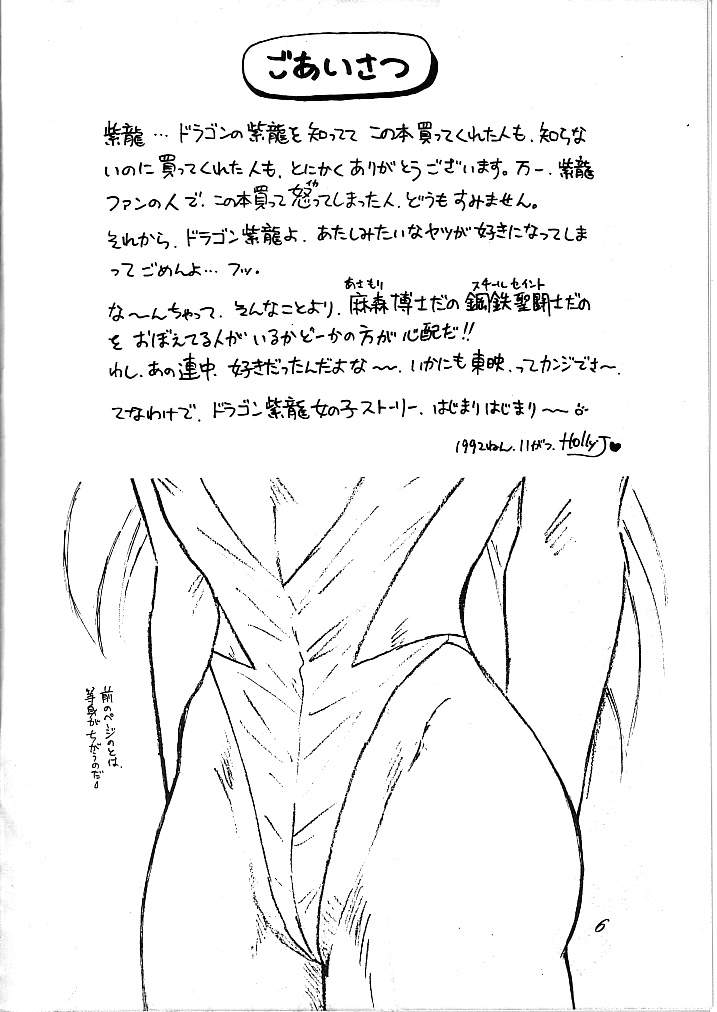 ごあいさつ
紫龍…ドラゴンの紫龍を知ってて この本買ってくれた人も、知らな
いのに買ってくれた人も、とにかくありがとうございます。万一、紫龍
ファンの人で、この本買って怒ってしまった人、どうもすみません。
それから、ドラゴン紫龍よ、あたしみたいなヤツが好きになってしま
ってごめんよ… フッ。
な〜んちゃって、そんなことより、麻森博士だの鋼鉄聖闘士だの
あさもり スチールセイント
を おぼえてる人が いるかどーかの方が心配だ!!
わし、あの連中、好きだったんだよな〜〜、いかにも東映、ってカンジでさ〜、
てなわけで、ドラゴン紫龍女の子ストーリー、はじまりはじまり〜〜
1992ねん、11がつ、Holly J♥
前のページのとは、
等身がちがうのだ。
6